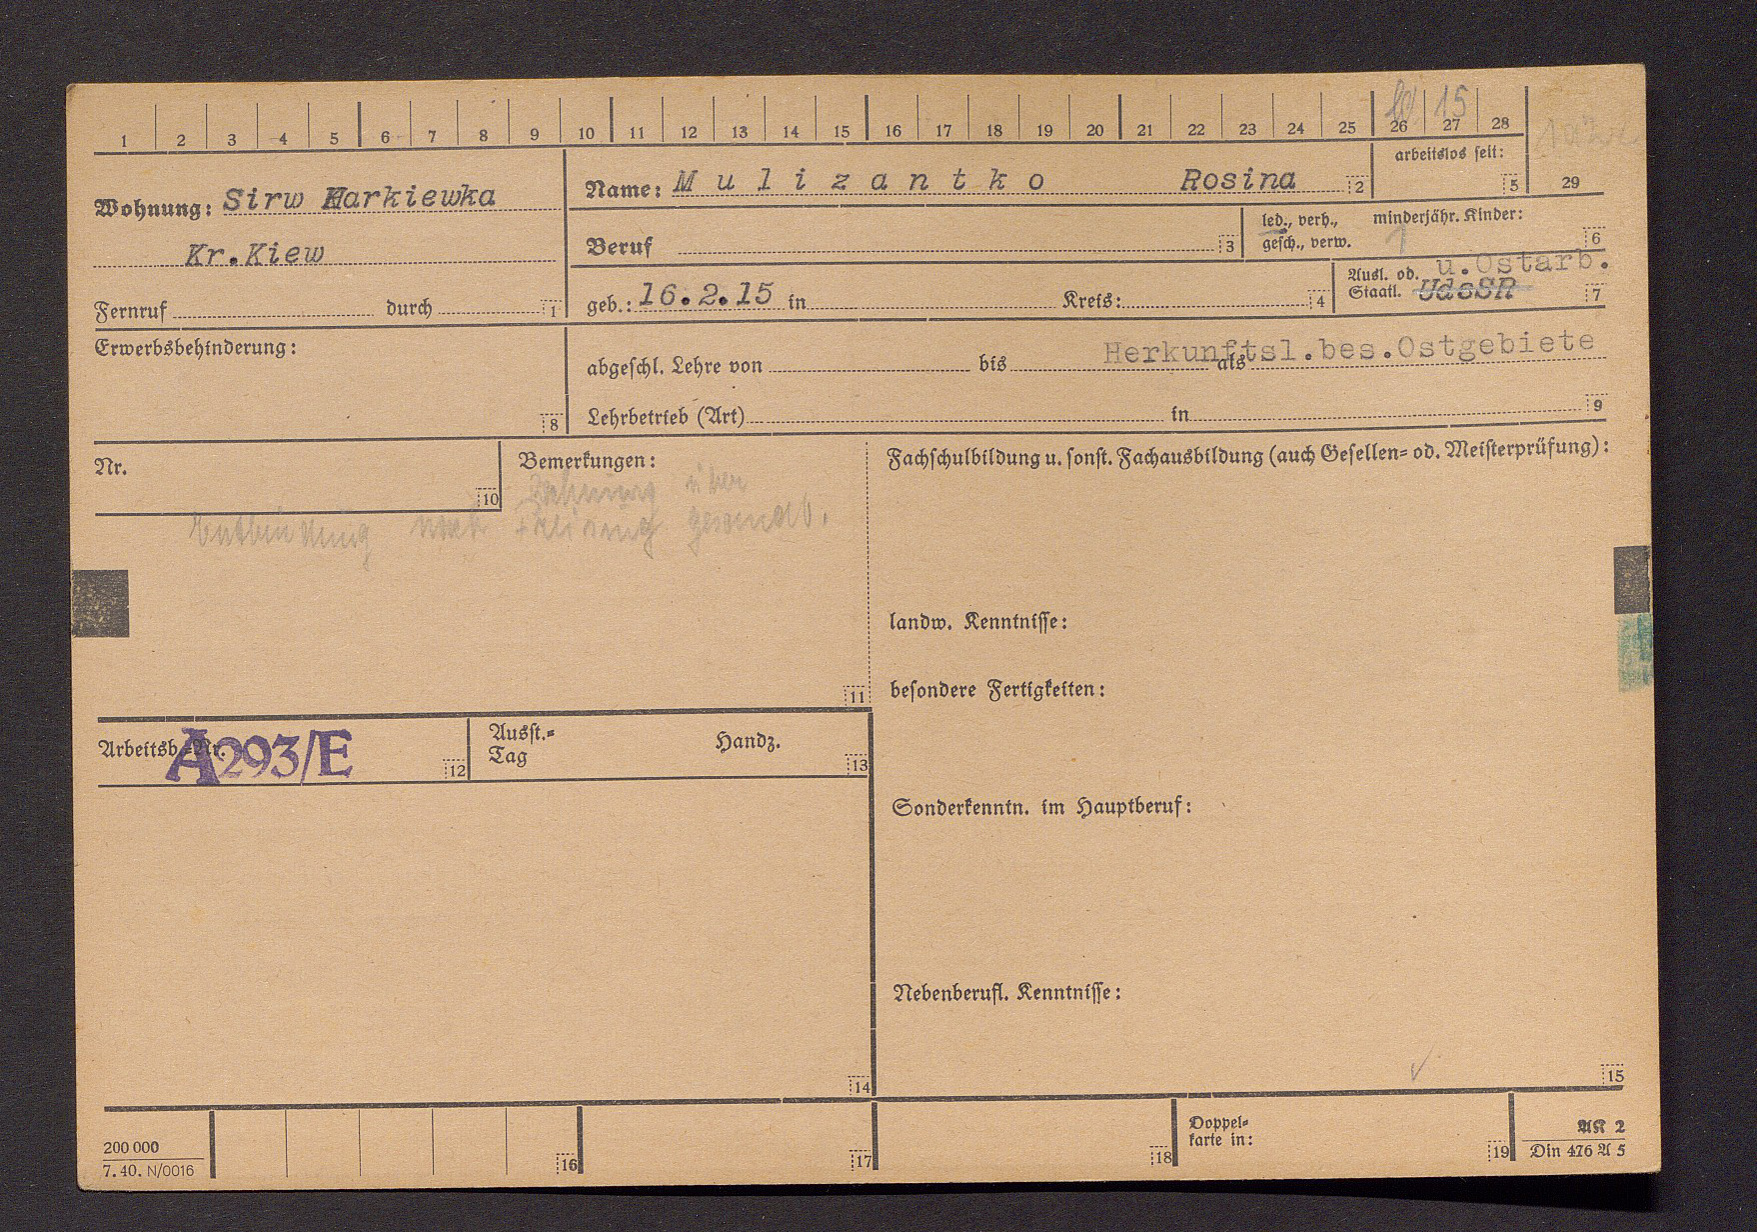 1 2 3 4 5 6 7 8 9 10 11 12 13 14 15 16 17 18 19 20 21 22 23 24 25 26 27 28
15
arbeitslos seit:
5
29
Wohnung: Sirw Harkiewka
Kr.Kiew
Fernruf durch 1
Name: Mulizantko Rosina 2
Beruf 3
led., verh., gesch., verw.
minderjähr. Kinder:
1
6
geb.: 16.2.15 in Kreis: 4
Ausl. od. Staatl. u.Ostarb.
UdSSR
7
Erwerbsbehinderung:
8
Herkunftsl.bes.Ostgebiete
abgeschl. Lehre von bis als
Lehrbetrieb (Art) in 9
Nr.
10
Bemerkungen:
über
Entbindung nach Freising gesandt.
11
Fachschulbildung u. sonst. Fachausbildung (auch Gesellen- od. Meisterprüfung):
landw. Kenntnisse:
besondere Fertigkeiten:
Arbeitsb.-Nr. A293/E
12
Ausst.-Tag Handz.
13
Sonderkenntn. im Hauptberuf:
Nebenberufl. Kenntnisse:
14
15
200 000
7. 40. N/0016
16
17
18
Doppel-
karte in:
19
AK 2
Din 476 A 5